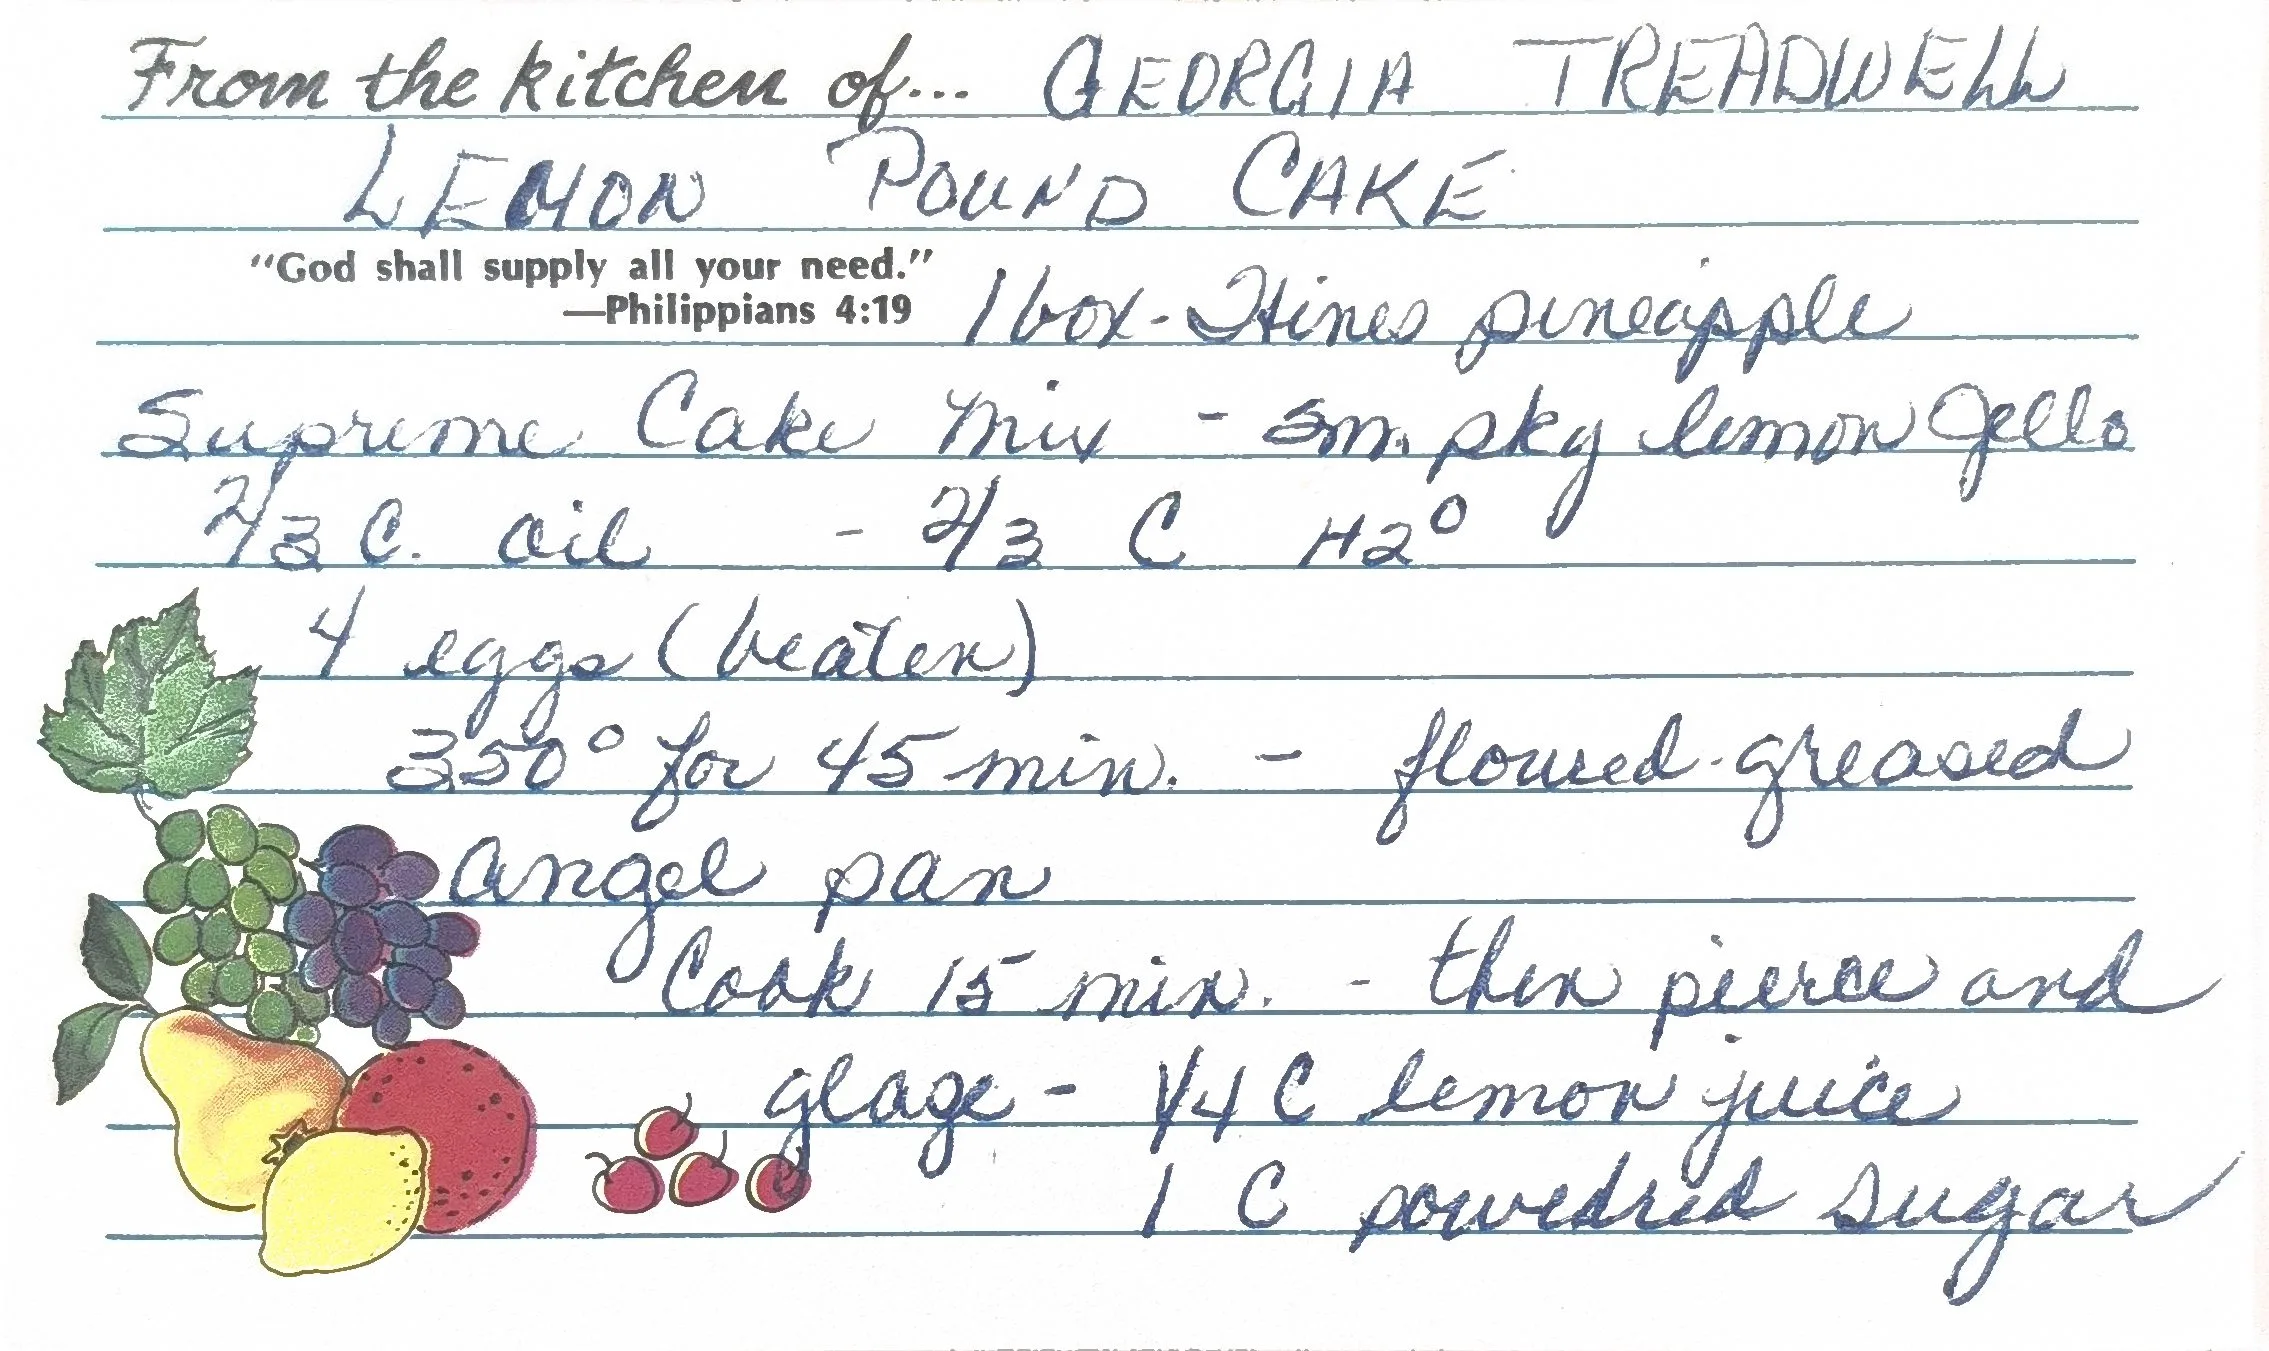 From the kitchen of... GEORGIA TREADWELL
LEMON POUND CAKE
"God shall supply all your need."
—Philippians 4:19
1 box - Hines pineapple
Supreme Cake Mix - sm. pkg lemon Jello
2/3 C. oil - 2/3 C H2O
4 eggs (beaten)
350° for 45 min. - floured-greased
angel pan
Cook 15 min. - then pierce and
glaze - 1/4 C lemon juice
1 C powedred sugar